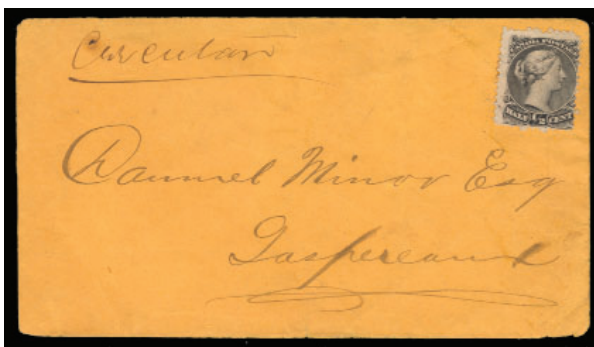 Circular
CANADA POSTAGE
HALF 1/2 CENT
Daniel Minor Esq
Gaspereaux